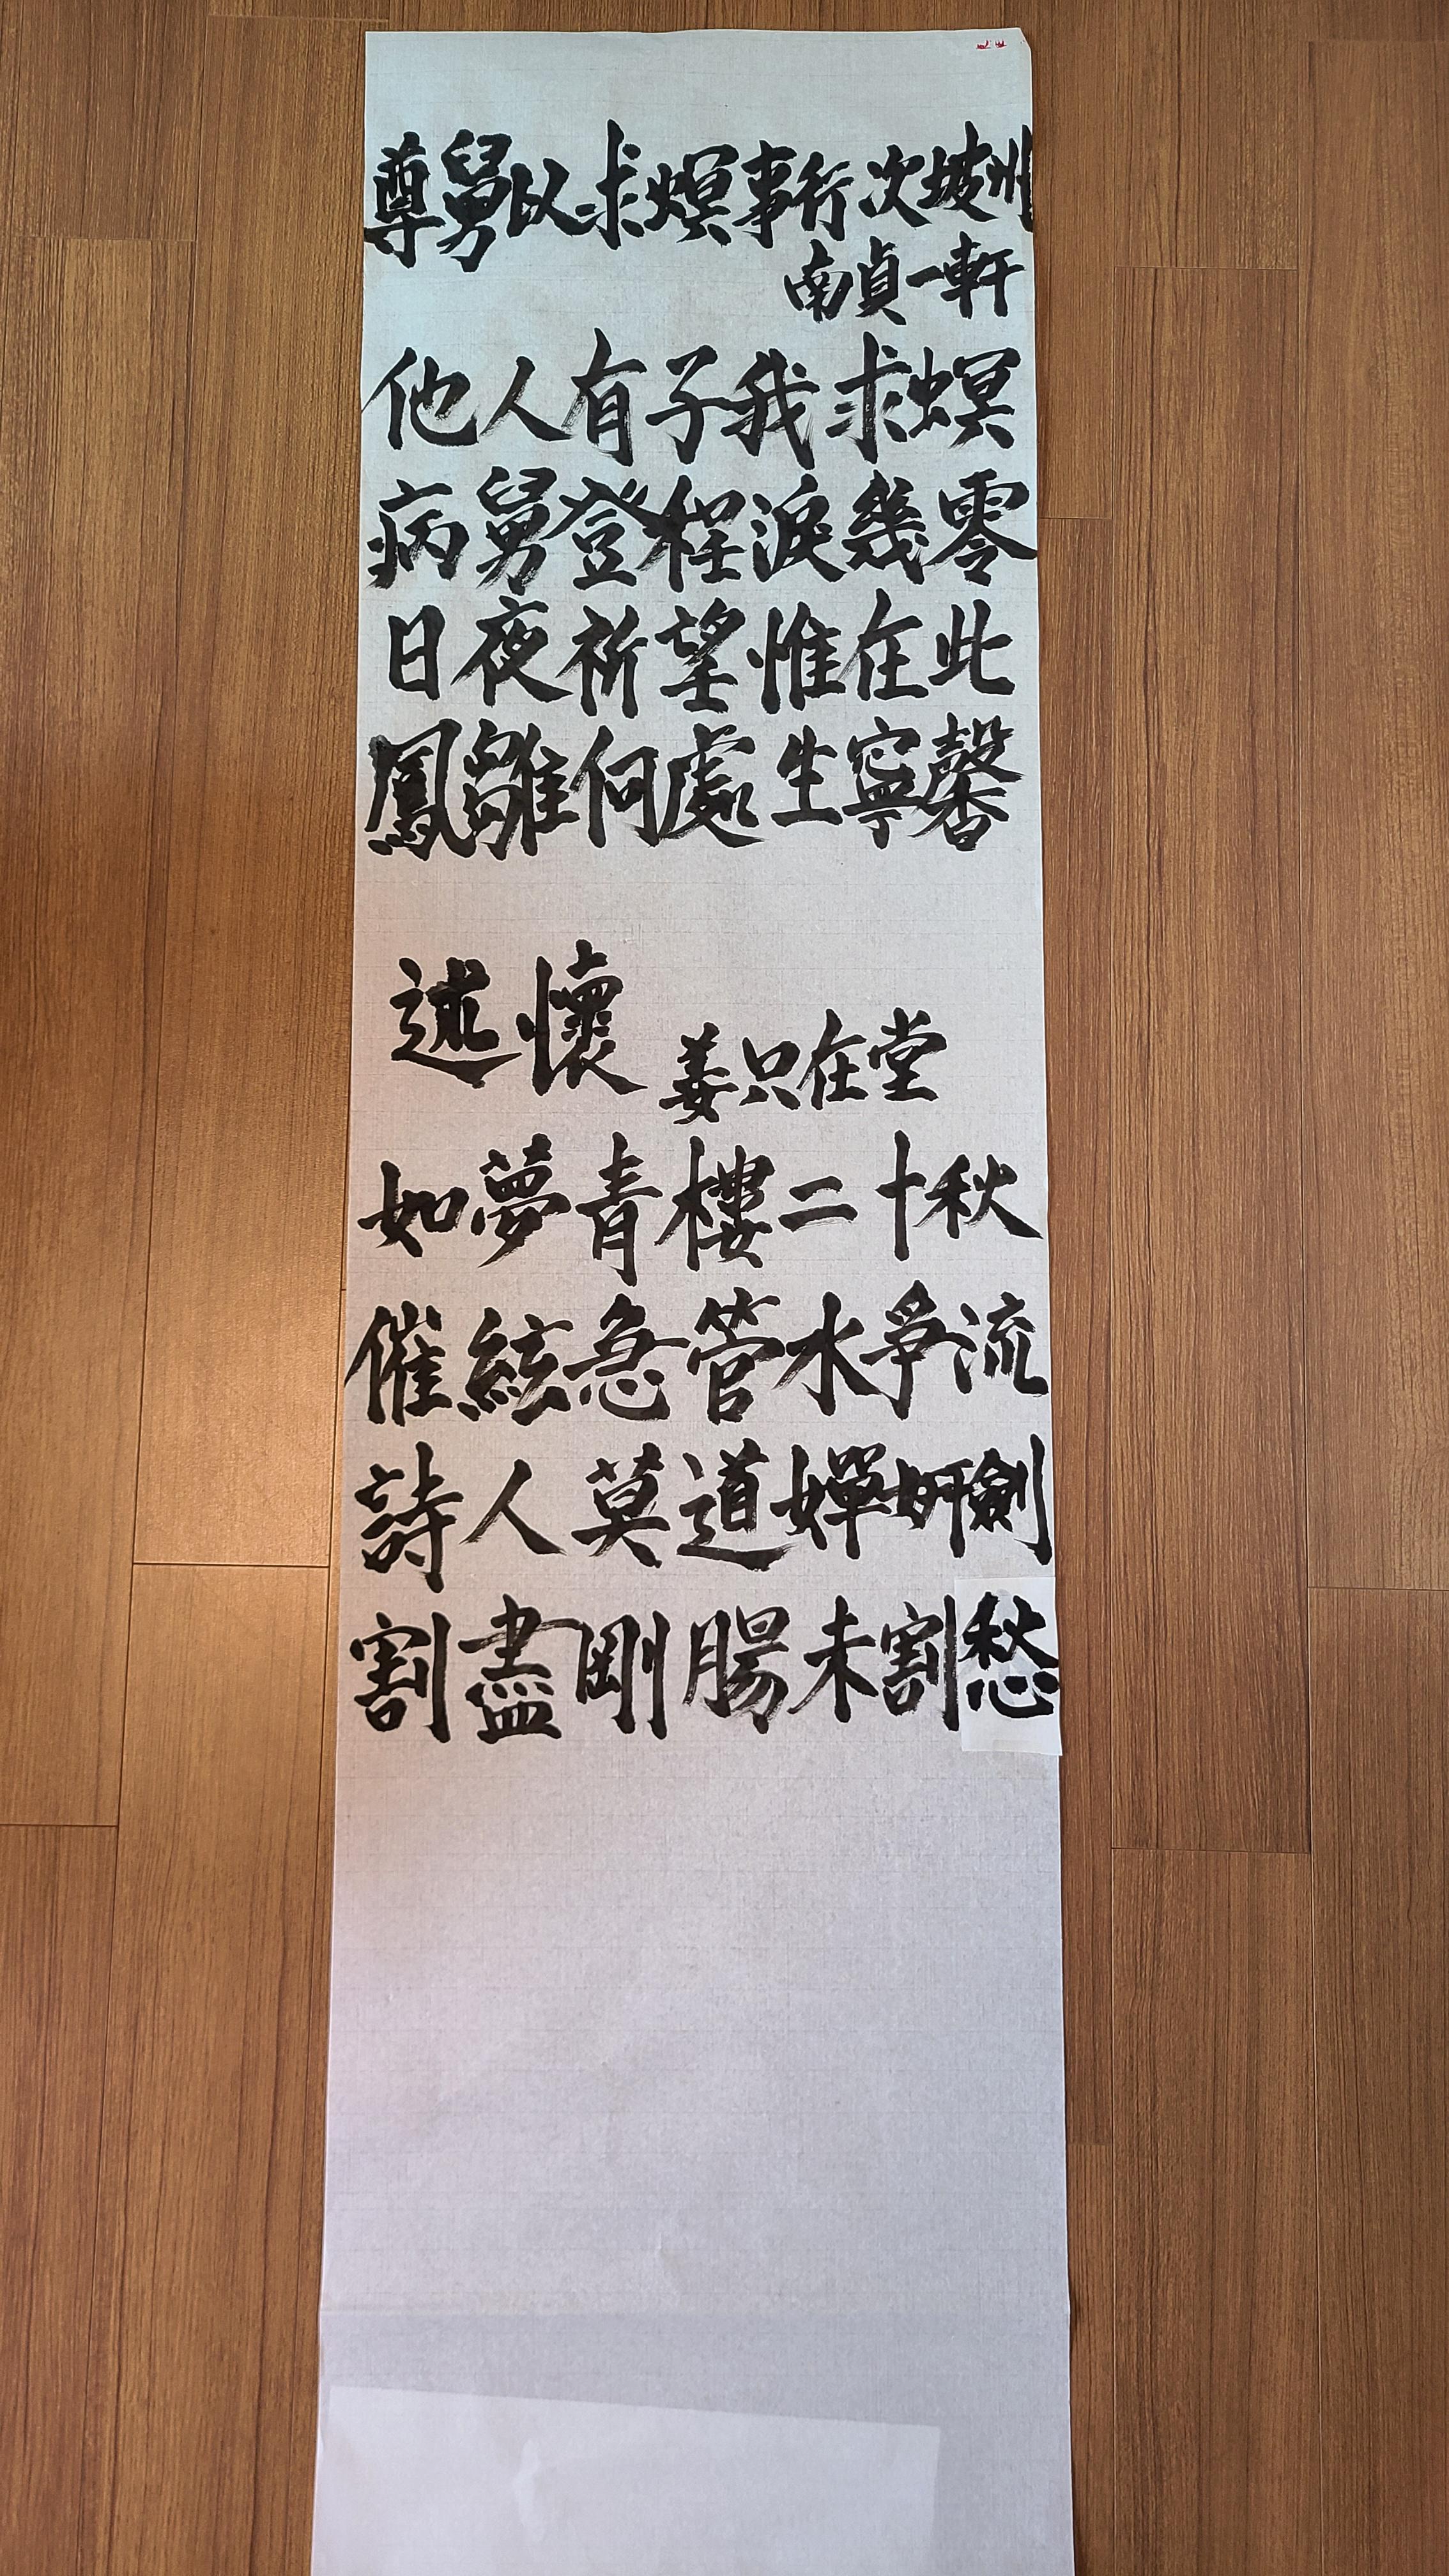 尊舅以求螟事行次坡州
南貞一軒
他人有子我求螟
病舅登程淚幾零
日夜祈望惟在此
鳳雛何處生寧馨
述懷 姜只在堂
如夢青樓二十秋
催絃急管水爭流
詩人莫道嬋妍劍
割盡剛腸未割愁